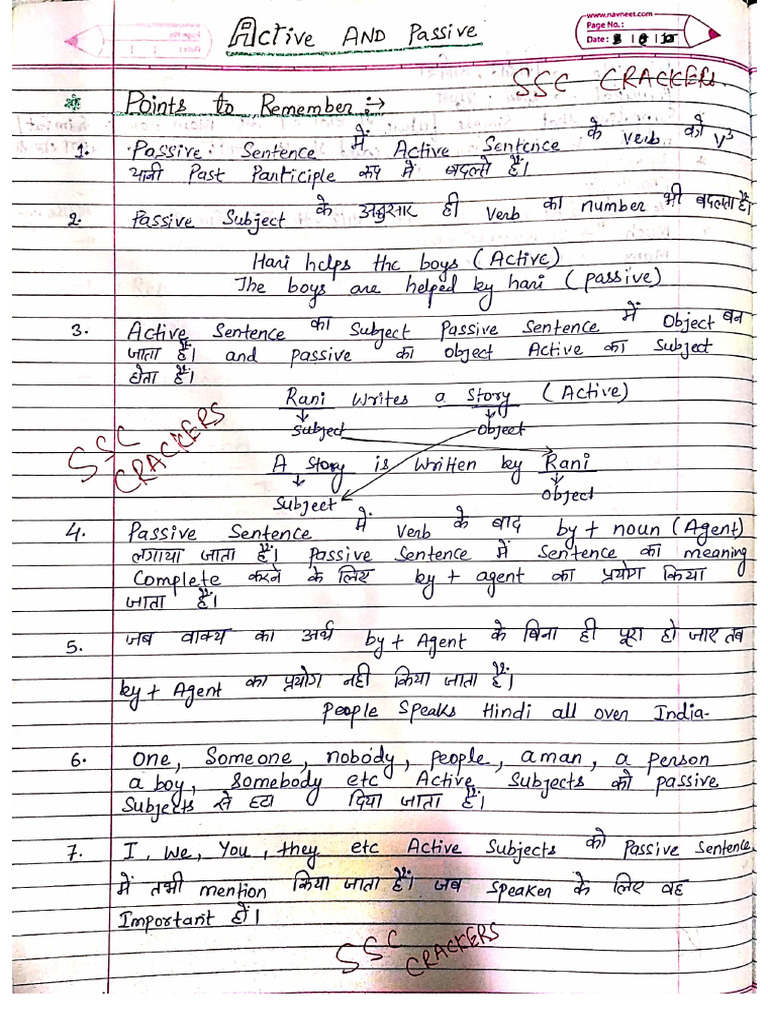 Active AND Passive
www.navneet.com
Page No.:
Date:
SSC CRACKERS
Points to Remember :→
1. Passive Sentence में Active Sentence के verb को V³
यानी Past Participle रूप में बदलते हैं।
2. Passive Subject के अनुसार ही verb का number भी बदलता है।
Hari helps the boys (Active)
The boys are helped by hari (passive)
3. Active Sentence का Subject Passive Sentence में Object बन
जाता हैं। and passive का object Active का Subject
होता हैं।
Rani writes a Story (Active)
Subject Object
SSC CRACKERS
A Story is written by Rani
Subject Object
4. Passive Sentence में verb के बाद by + noun (Agent)
लगाया जाता हैं। Passive Sentence में Sentence का meaning
Complete करने के लिए by + agent का प्रयोग किया
जाता हैं।
5. जब वाक्य का अर्थ by + Agent के बिना ही पूरा हो जाए तब
by + Agent का प्रयोग नही किया जाता हैं।
People Speaks Hindi all over India.
6. One, Someone, nobody, people, a man, a person
a boy, somebody etc Active Subjects को passive
Subjects से हटा दिया जाता हैं।
7. I, we, You, they etc Active Subjects को Passive Sentence
में तभी mention किया जाता हैं। जब speaker के लिए वह
Important हों।
SSC CRACKERS